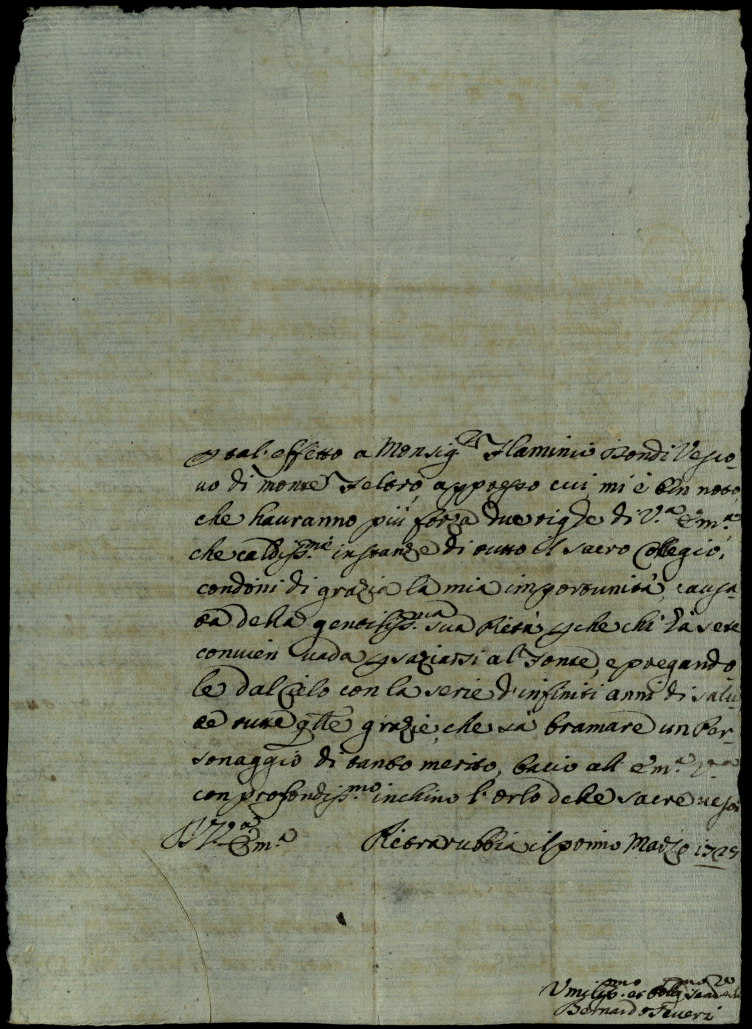 p tal' effetto a Monsig.r Flaminio Dondi Vesco-
uo di monte Feltro, appresso cui mi è ben noto,
che hauranno più forza due righe di V.a Em.a
che caldiss.me instanze di tutto il sacro Collegio,
condoni di grazia la mia importunità, causa-
ta della gentiliss.ma sua Pietà, p che chi hà sete
convien vada p saziarsi al Fonte, e pregando
le dal Cielo con la serie d'infiniti anni di salu
te tutte q.lle grazie, che sà bramare un Per-
sonaggio di tanto merito, bacio all' Em.a V.a
con profondiss.mo inchino l'orlo delle sacre vesti
D V.a Em.a Pietrarubbia il primo Marzo 1725
Vmiliss.mo et obblig.mo
Bernardo